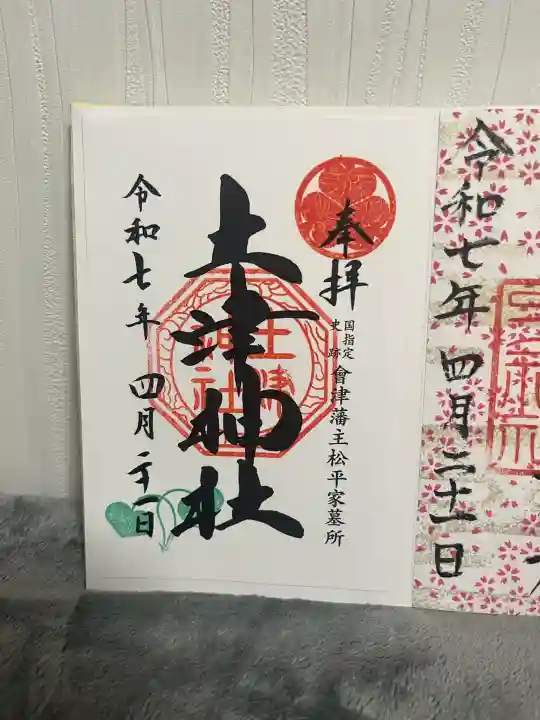 令和七年四月二十一日
奉拝
国指定
史跡
會津藩主松平家墓所
土津神社
土津
神社
令和七年 四月二十一日